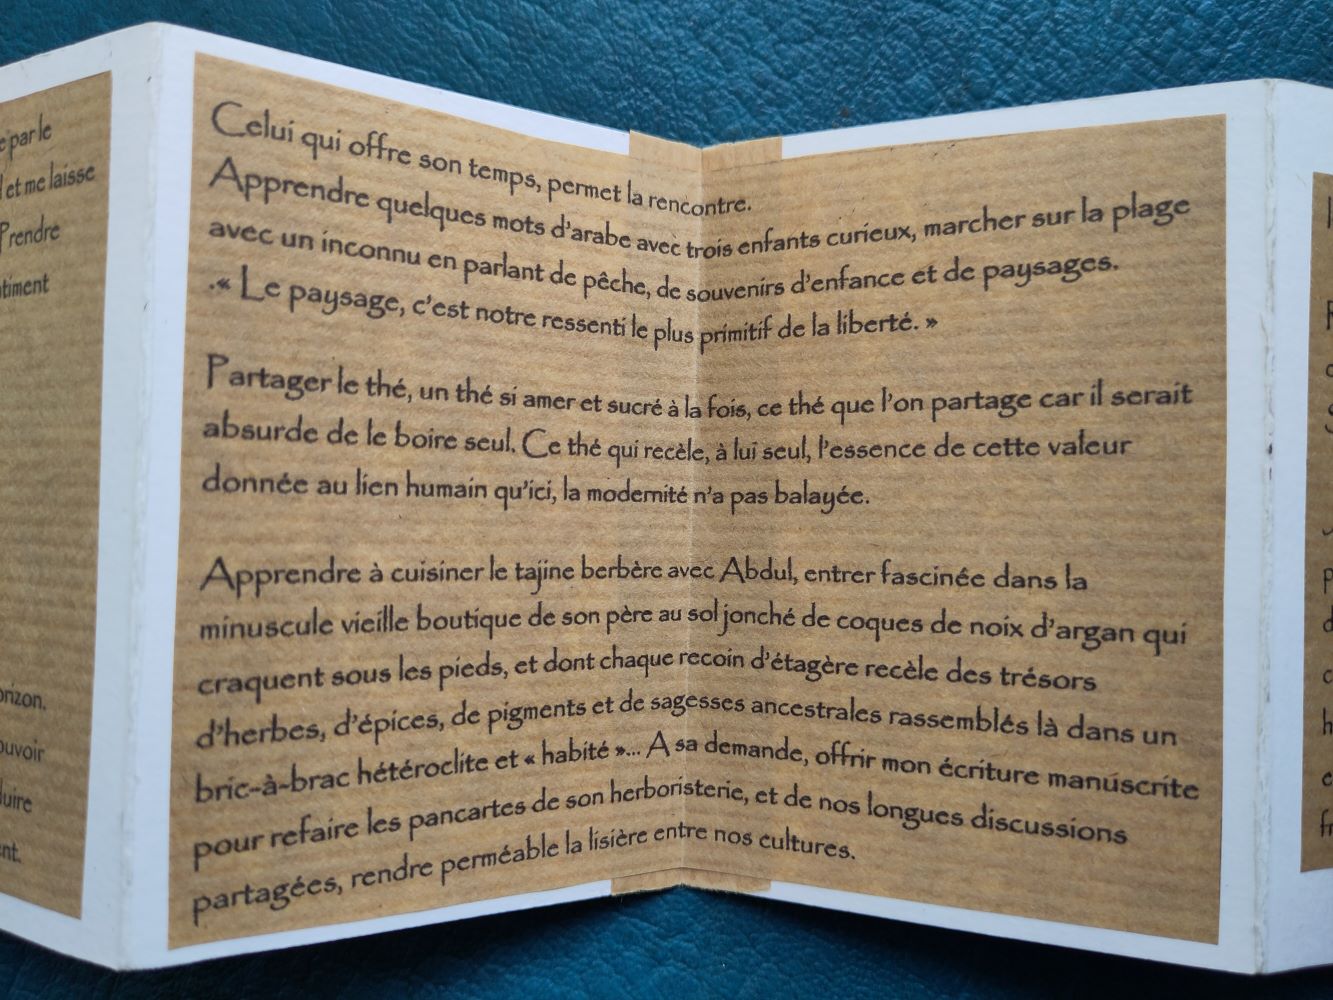 par le
et me laisse
Prendre
Celui qui offre son temps, permet la rencontre.
Apprendre quelques mots d'arabe avec trois enfants curieux, marcher sur la plage
avec un inconnu en parlant de pêche, de souvenirs d'enfance et de paysages.
.« Le paysage, c'est notre ressenti le plus primitif de la liberté. »
Partager le thé, un thé si amer et sucré à la fois, ce thé que l'on partage car il serait
absurde de le boire seul. Ce thé qui recèle, à lui seul, l'essence de cette valeur
donnée au lien humain qu'ici, la modernité n'a pas balayée.
Apprendre à cuisiner le tajine berbère avec Abdul, entrer fascinée dans la
minuscule vieille boutique de son père au sol jonché de coques de noix d'argan qui
craquent sous les pieds, et dont chaque recoin d'étagère recèle des trésors
d'herbes, d'épices, de pigments et de sagesses ancestrales rassemblés là dans un
bric-à-brac hétéroclite et « habité »... A sa demande, offrir mon écriture manuscrite
pour refaire les pancartes de son herboristerie, et de nos longues discussions
partagées, rendre perméable la lisière entre nos cultures.